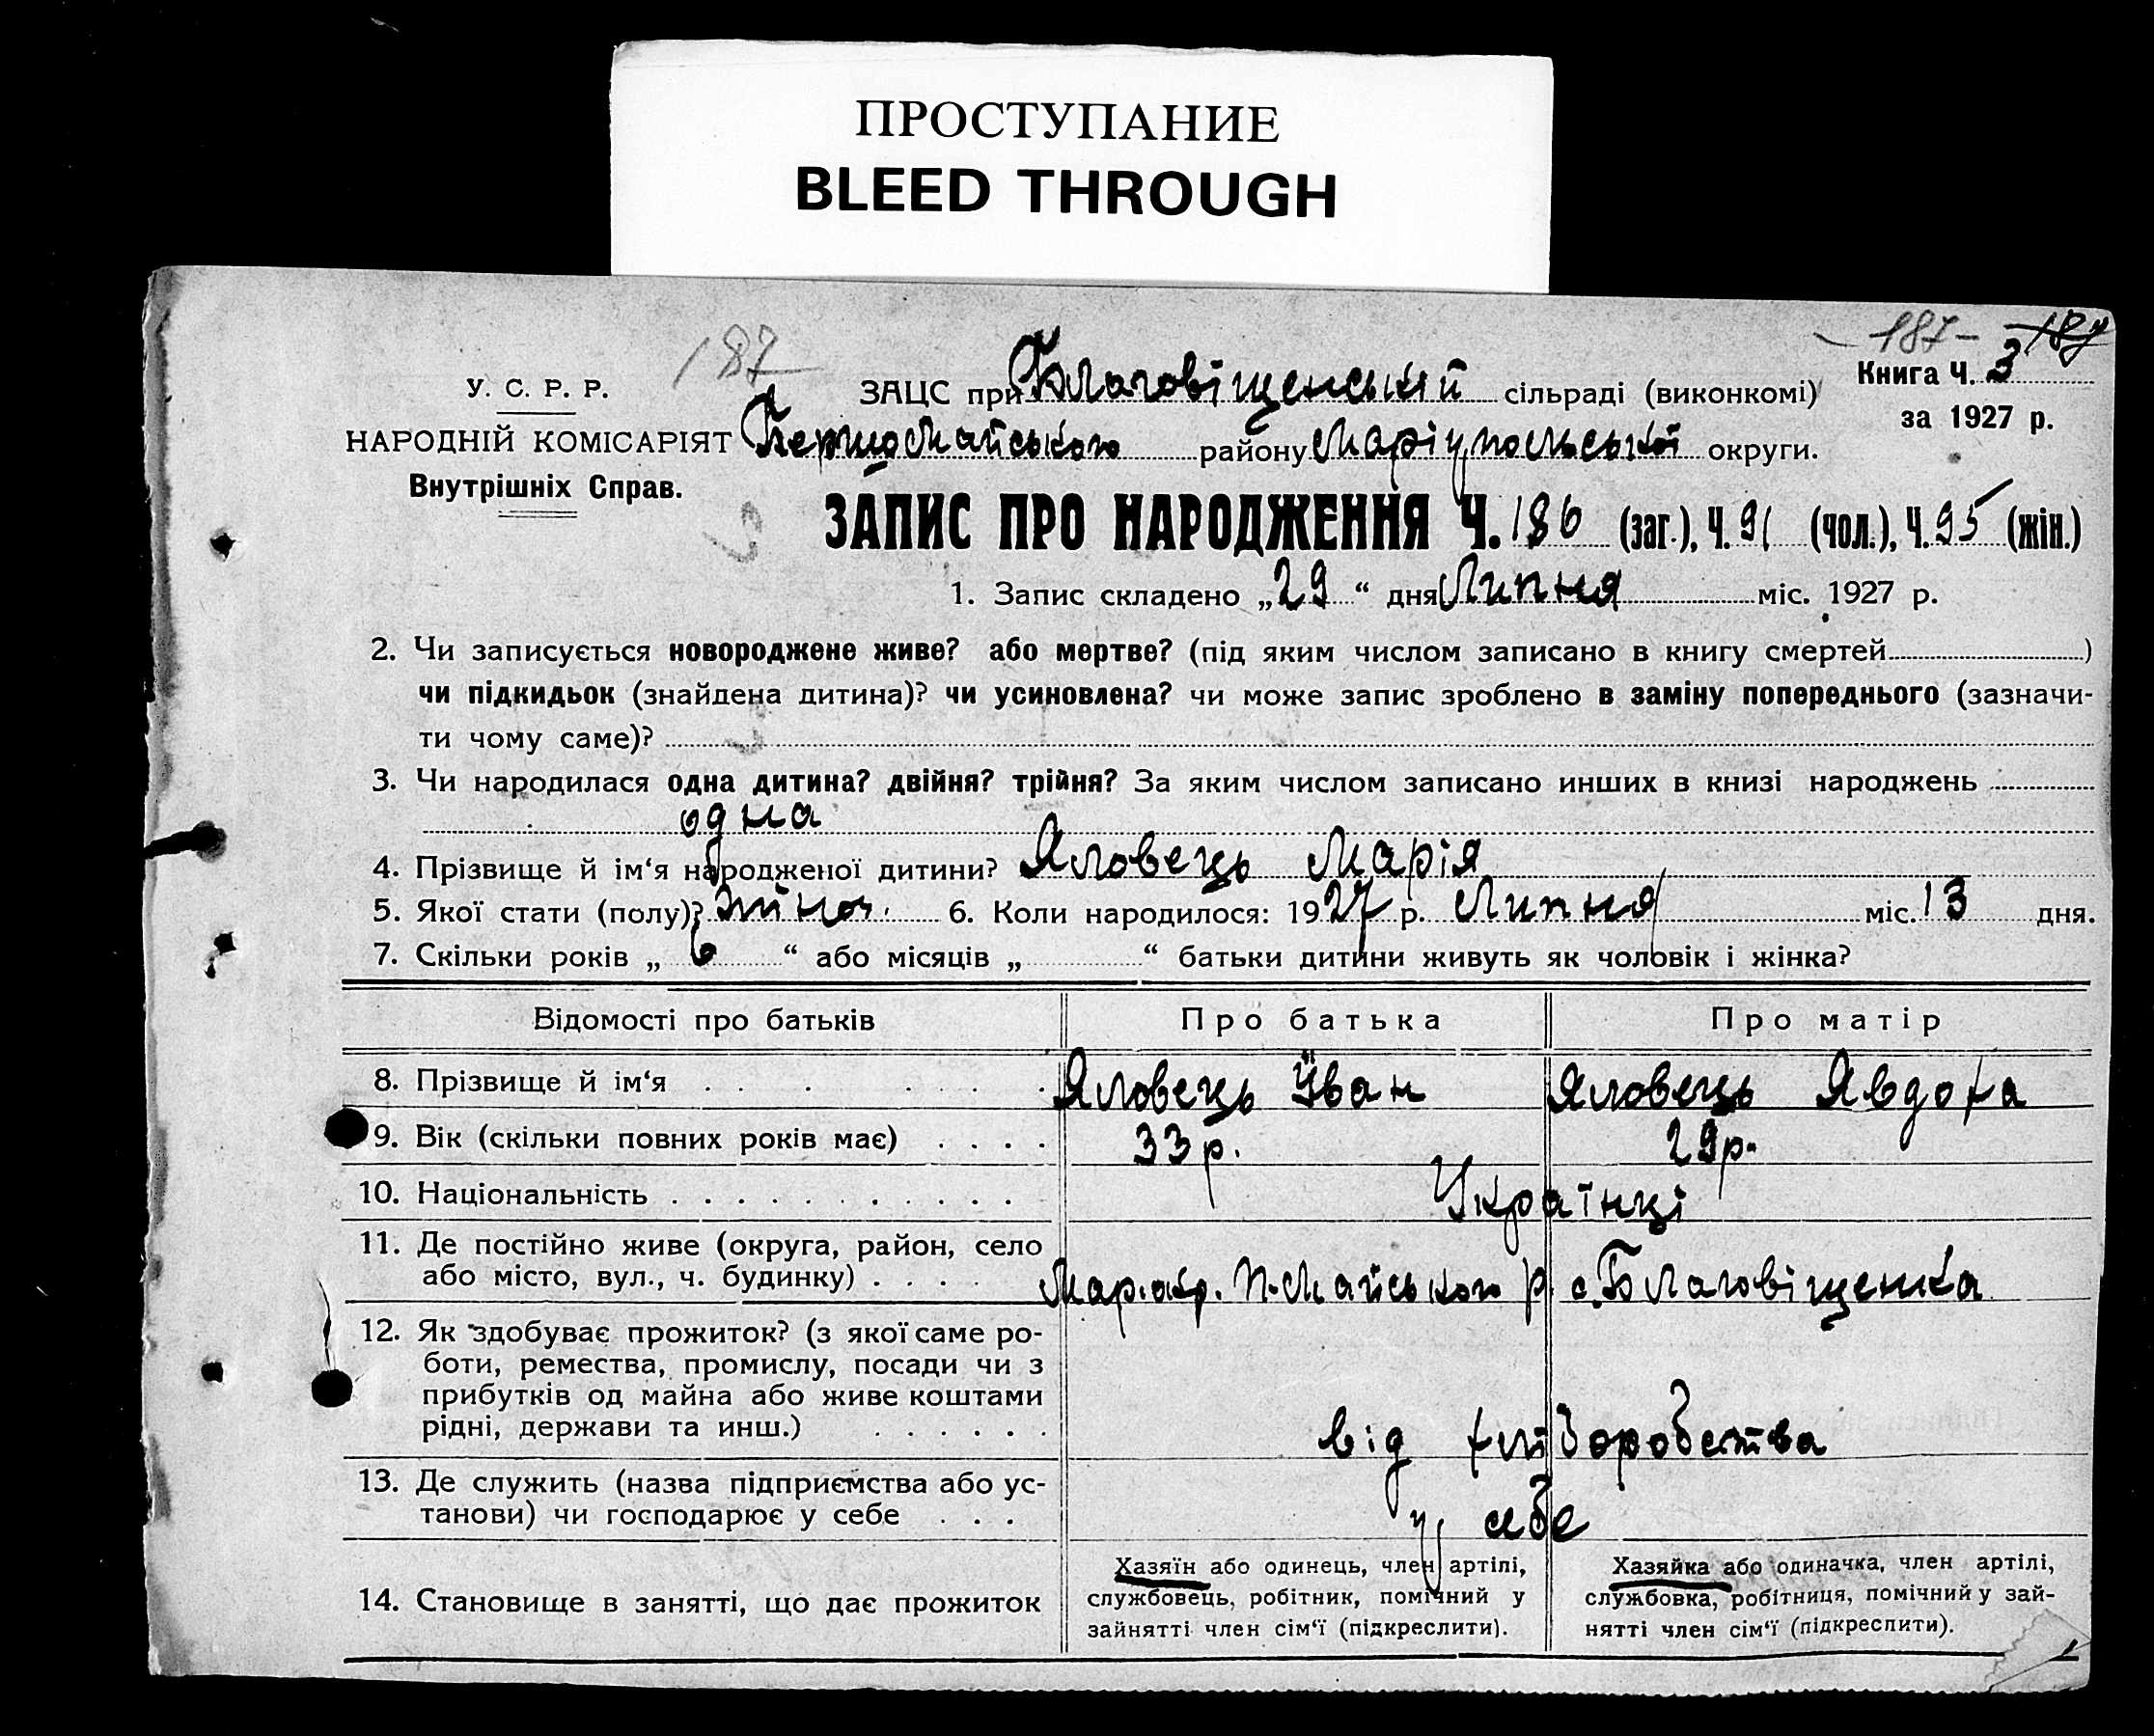 ПРОСТУПАНИЕ
BLEED THROUGH
187
187 – 187
У. С. Р. Р.
ЗАЦС при Благовіщенський сільраді (виконкомі)
Книга Ч. 3
за 1927 р.
НАРОДНІЙ КОМІСАРІЯТ
Першомайського району Маріупольської округи.
Внутрішніх Справ.
ЗАПИС ПРО НАРОДЖЕННЯ Ч. 186 (заг.), Ч. 91 (чол.), Ч. 95 (жін.)
1. Запис складено „29“ дня Липня міс. 1927 р.
2. Чи записується новороджене живе? або мертве? (під яким числом записано в книгу смертей )
чи підкидьок (знайдена дитина)? чи усиновлена? чи може запис зроблено в заміну попереднього (зазначи-
ти чому саме)?
3. Чи народилася одна дитина? двійня? трійня? За яким числом записано инших в книзі народжень
одна
4. Прізвище й ім‘я народженої дитини? Яловець Марія
5. Якої стати (полу)? жіноч. 6. Коли народилося: 1927 р. Липня міс. 13 дня.
7. Скільки років „ 6 “ або місяців „ “ батьки дитини живуть як чоловік і жінка?
Відомості про батьків Про батька Про матір
8. Прізвище й ім‘я . . . . . . . Яловець Іван Яловець Явдоха
9. Вік (скільки повних років має) . . . . 33 р. 29 р.
10. Національність . . . . . . . . . . . Українці
11. Де постійно живе (округа, район, село
або місто, вул., ч. будинку) . . . . Мар. окр. П-Майського р. с. Благовіщенка
12. Як здобуває прожиток? (з якої саме ро-
боти, ремества, промислу, посади чи з
прибутків од майна або живе коштами
рідні, держави та инш.) . . . . . . від хліборобства
13. Де служить (назва підприємства або ус-
танови) чи господарює у себе . . . у себе
14. Становище в занятті, що дає прожиток
Хазяїн або одинець, член артілі,
службовець, робітник, помічний у
зайнятті член сім‘ї (підкреслити).
Хазяйка або одиначка, член артілі,
службовка, робітниця, помічний у зай-
нятті член сім‘ї (підкреслити).